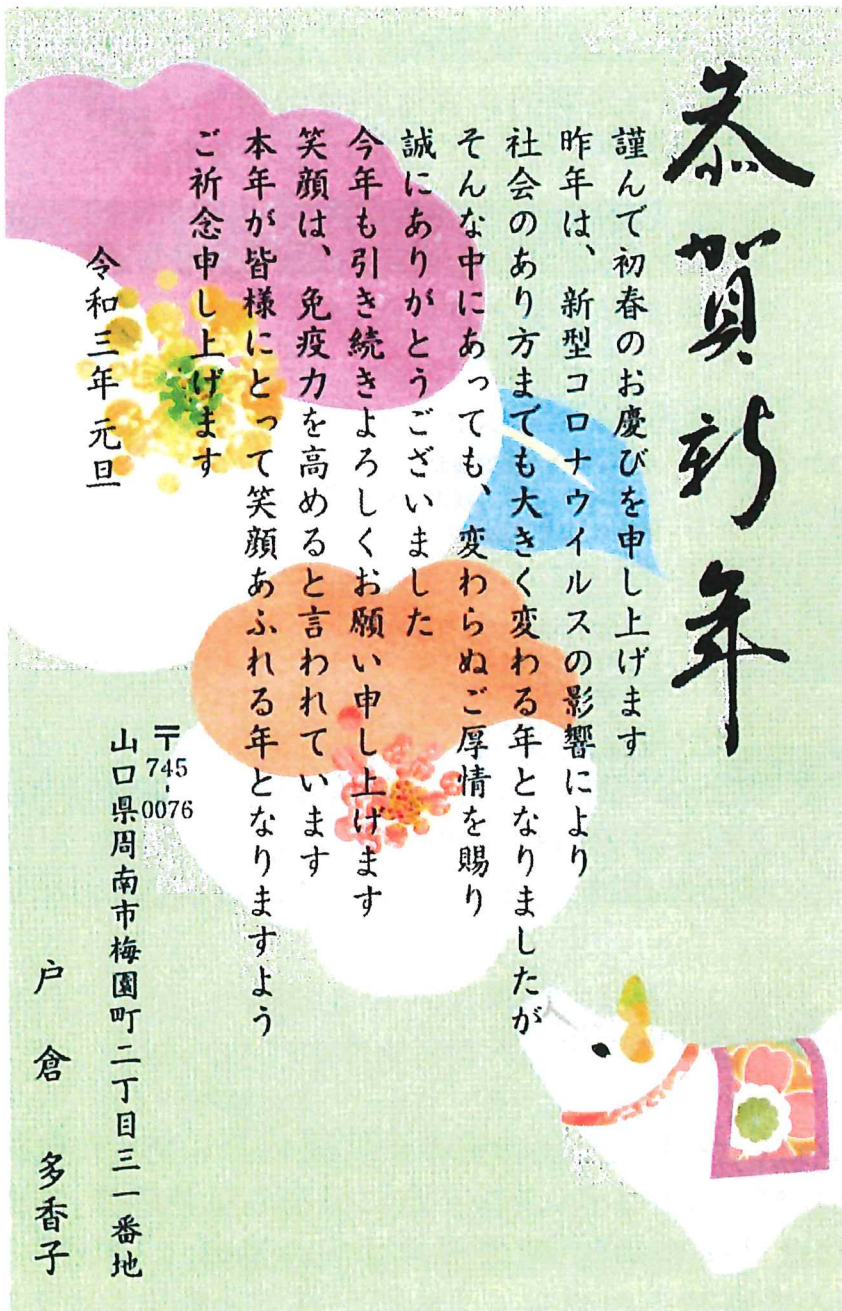 恭賀新年
謹んで初春のお慶びを申し上げます
昨年は、新型コロナウイルスの影響により
社会のあり方までも大きく変わる年となりましたが
そんな中にあっても、変わらぬご厚情を賜り
誠にありがとうございました
今年も引き続きよろしくお願い申し上げます
笑顔は、免疫力を高めると言われています
本年が皆様にとって笑顔あふれる年となりますよう
ご祈念申し上げます
令和三年 元旦
〒745-0076
山口県周南市梅園町二丁目三一番地
戸倉 多香子